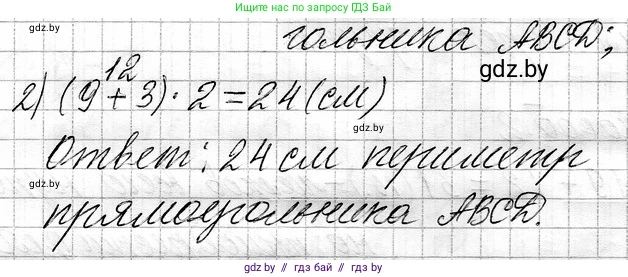 Ищите нас по запросу ГДЗ Бай
gdz.by
гольника ABCD;
gdz.by
12
2) (9 + 3) · 2 = 24 (см)
gdz.by
Ответ: 24 см периметр
gdz.by
прямоугольника ABCD.
gdz.by // гдз бай // гдз by